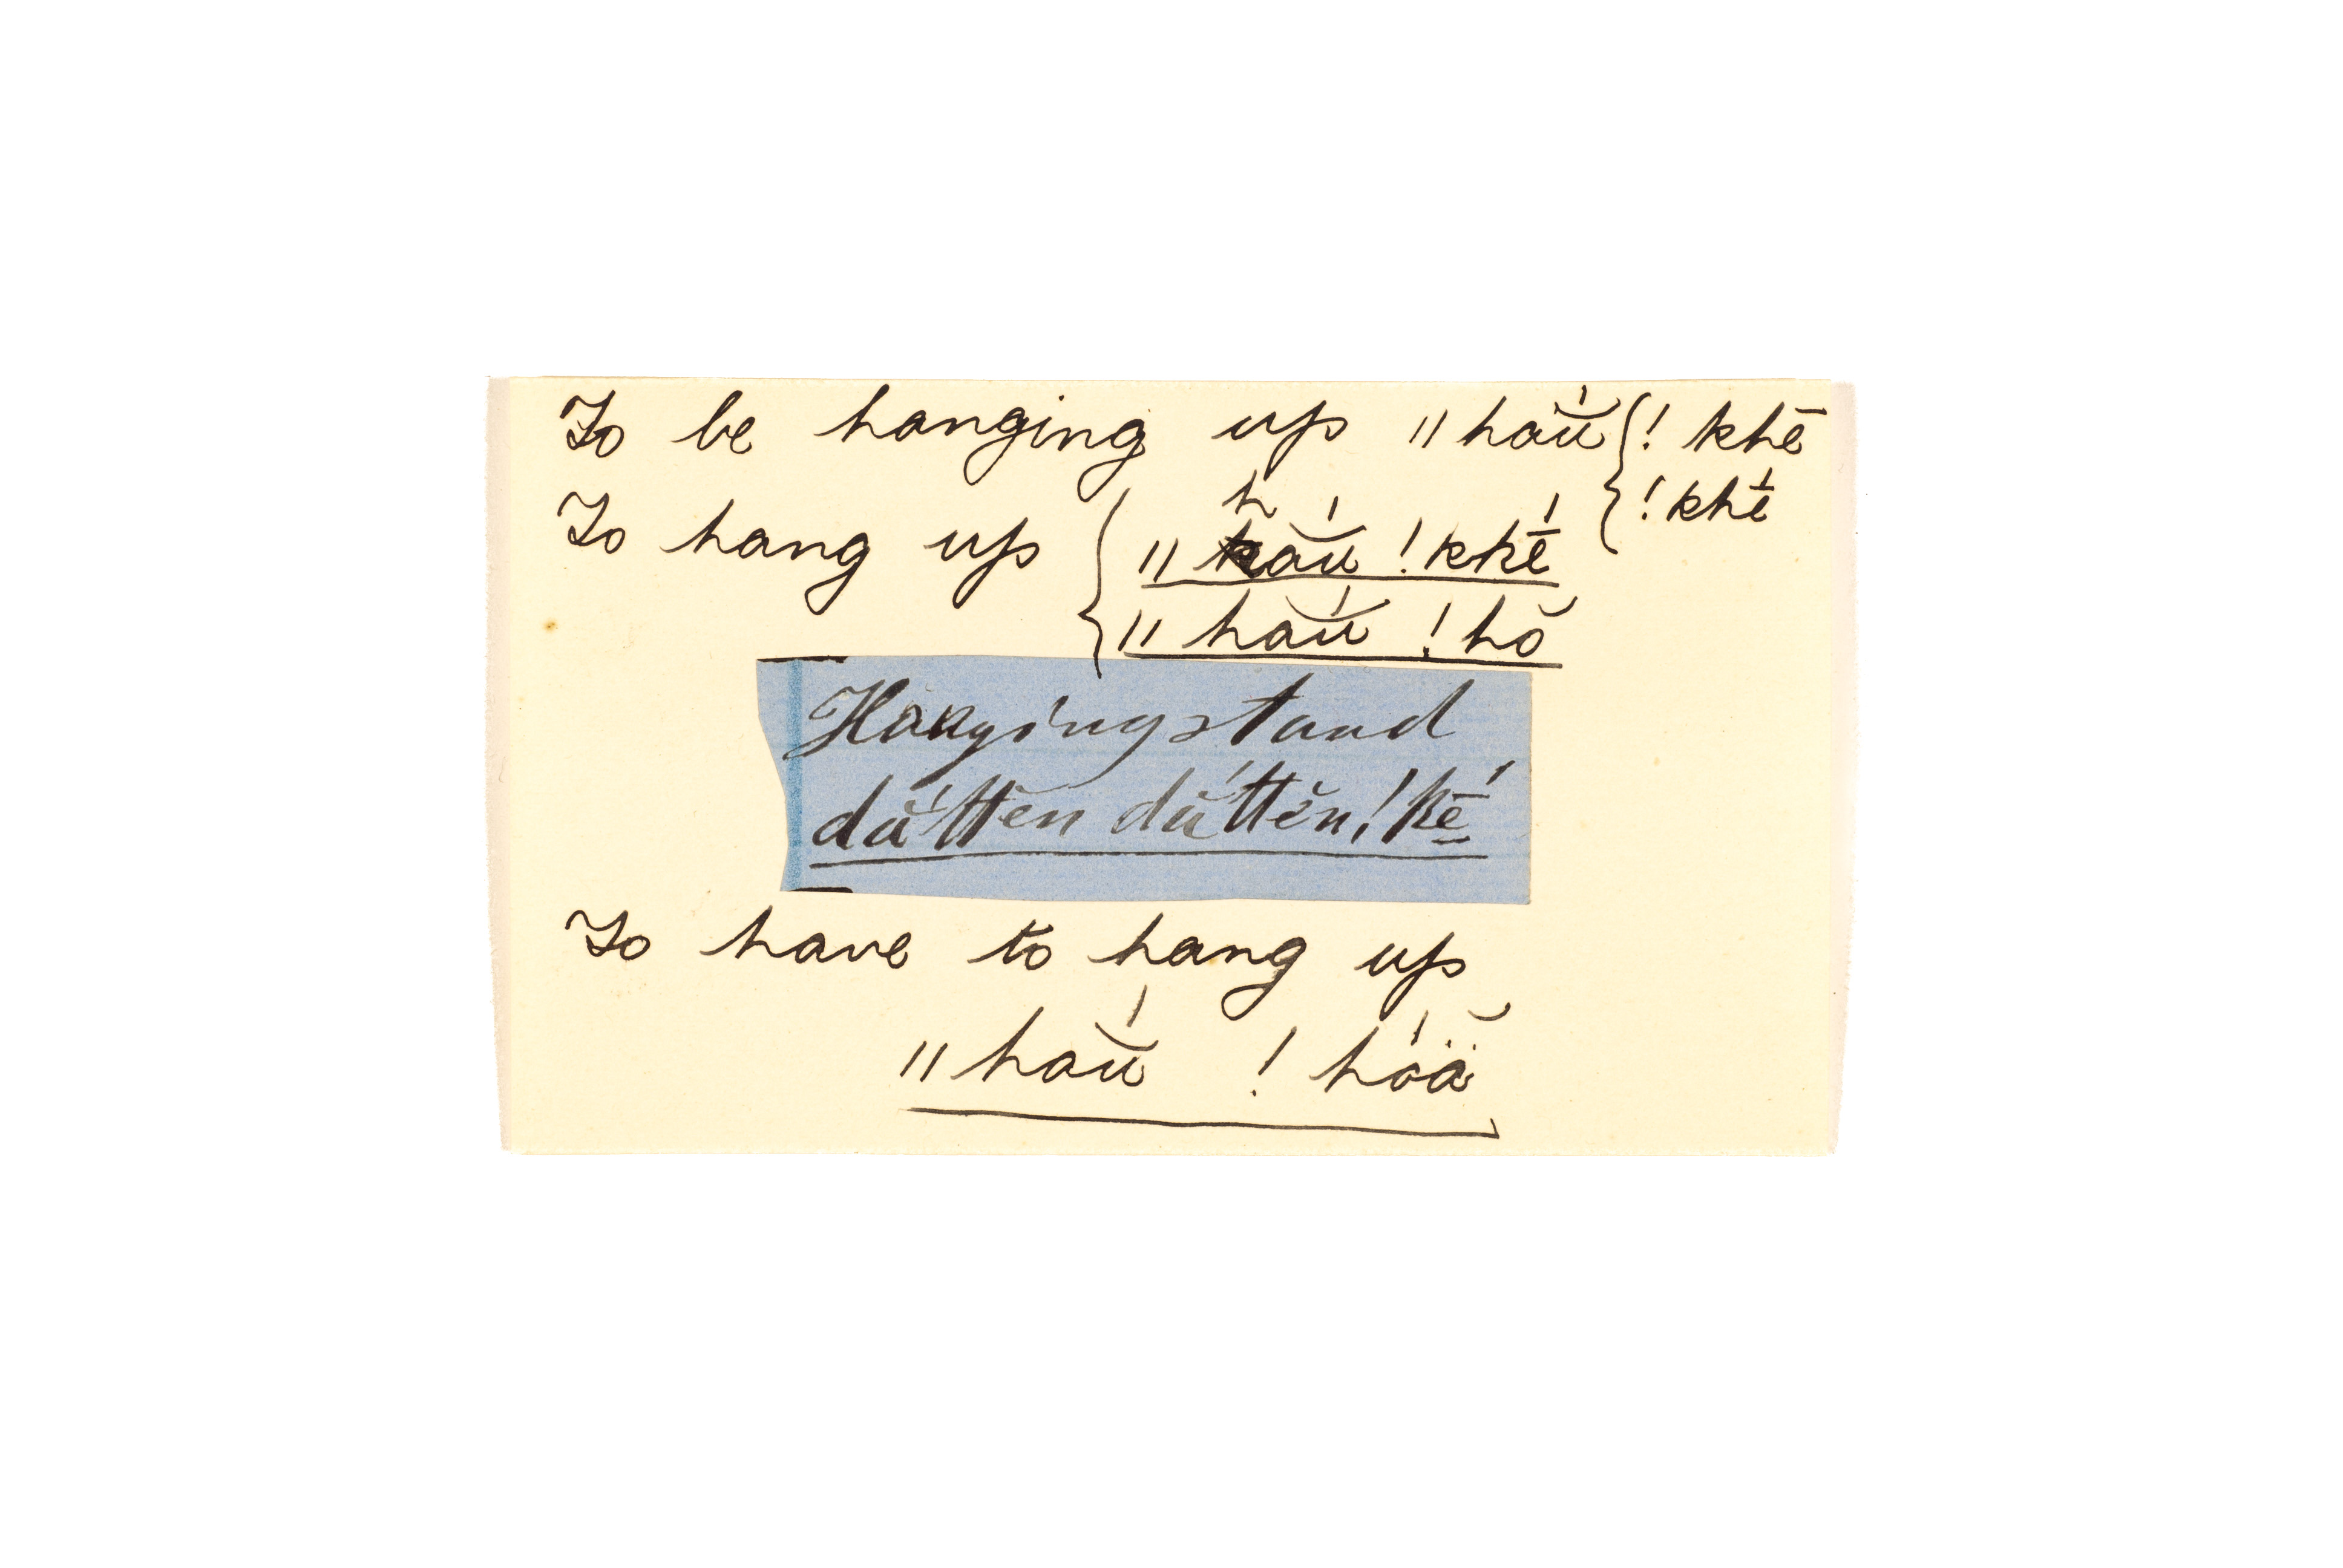 To be hanging up ǁhắu { !khē
{ !khḗ
To hang up { ǁhắu !kḱḗ
{ ǁhắu !hŏ
Hanging stand
dắttĕn dắttĕn !kḗ
To have to hang up
ǁhắu !hóä̆